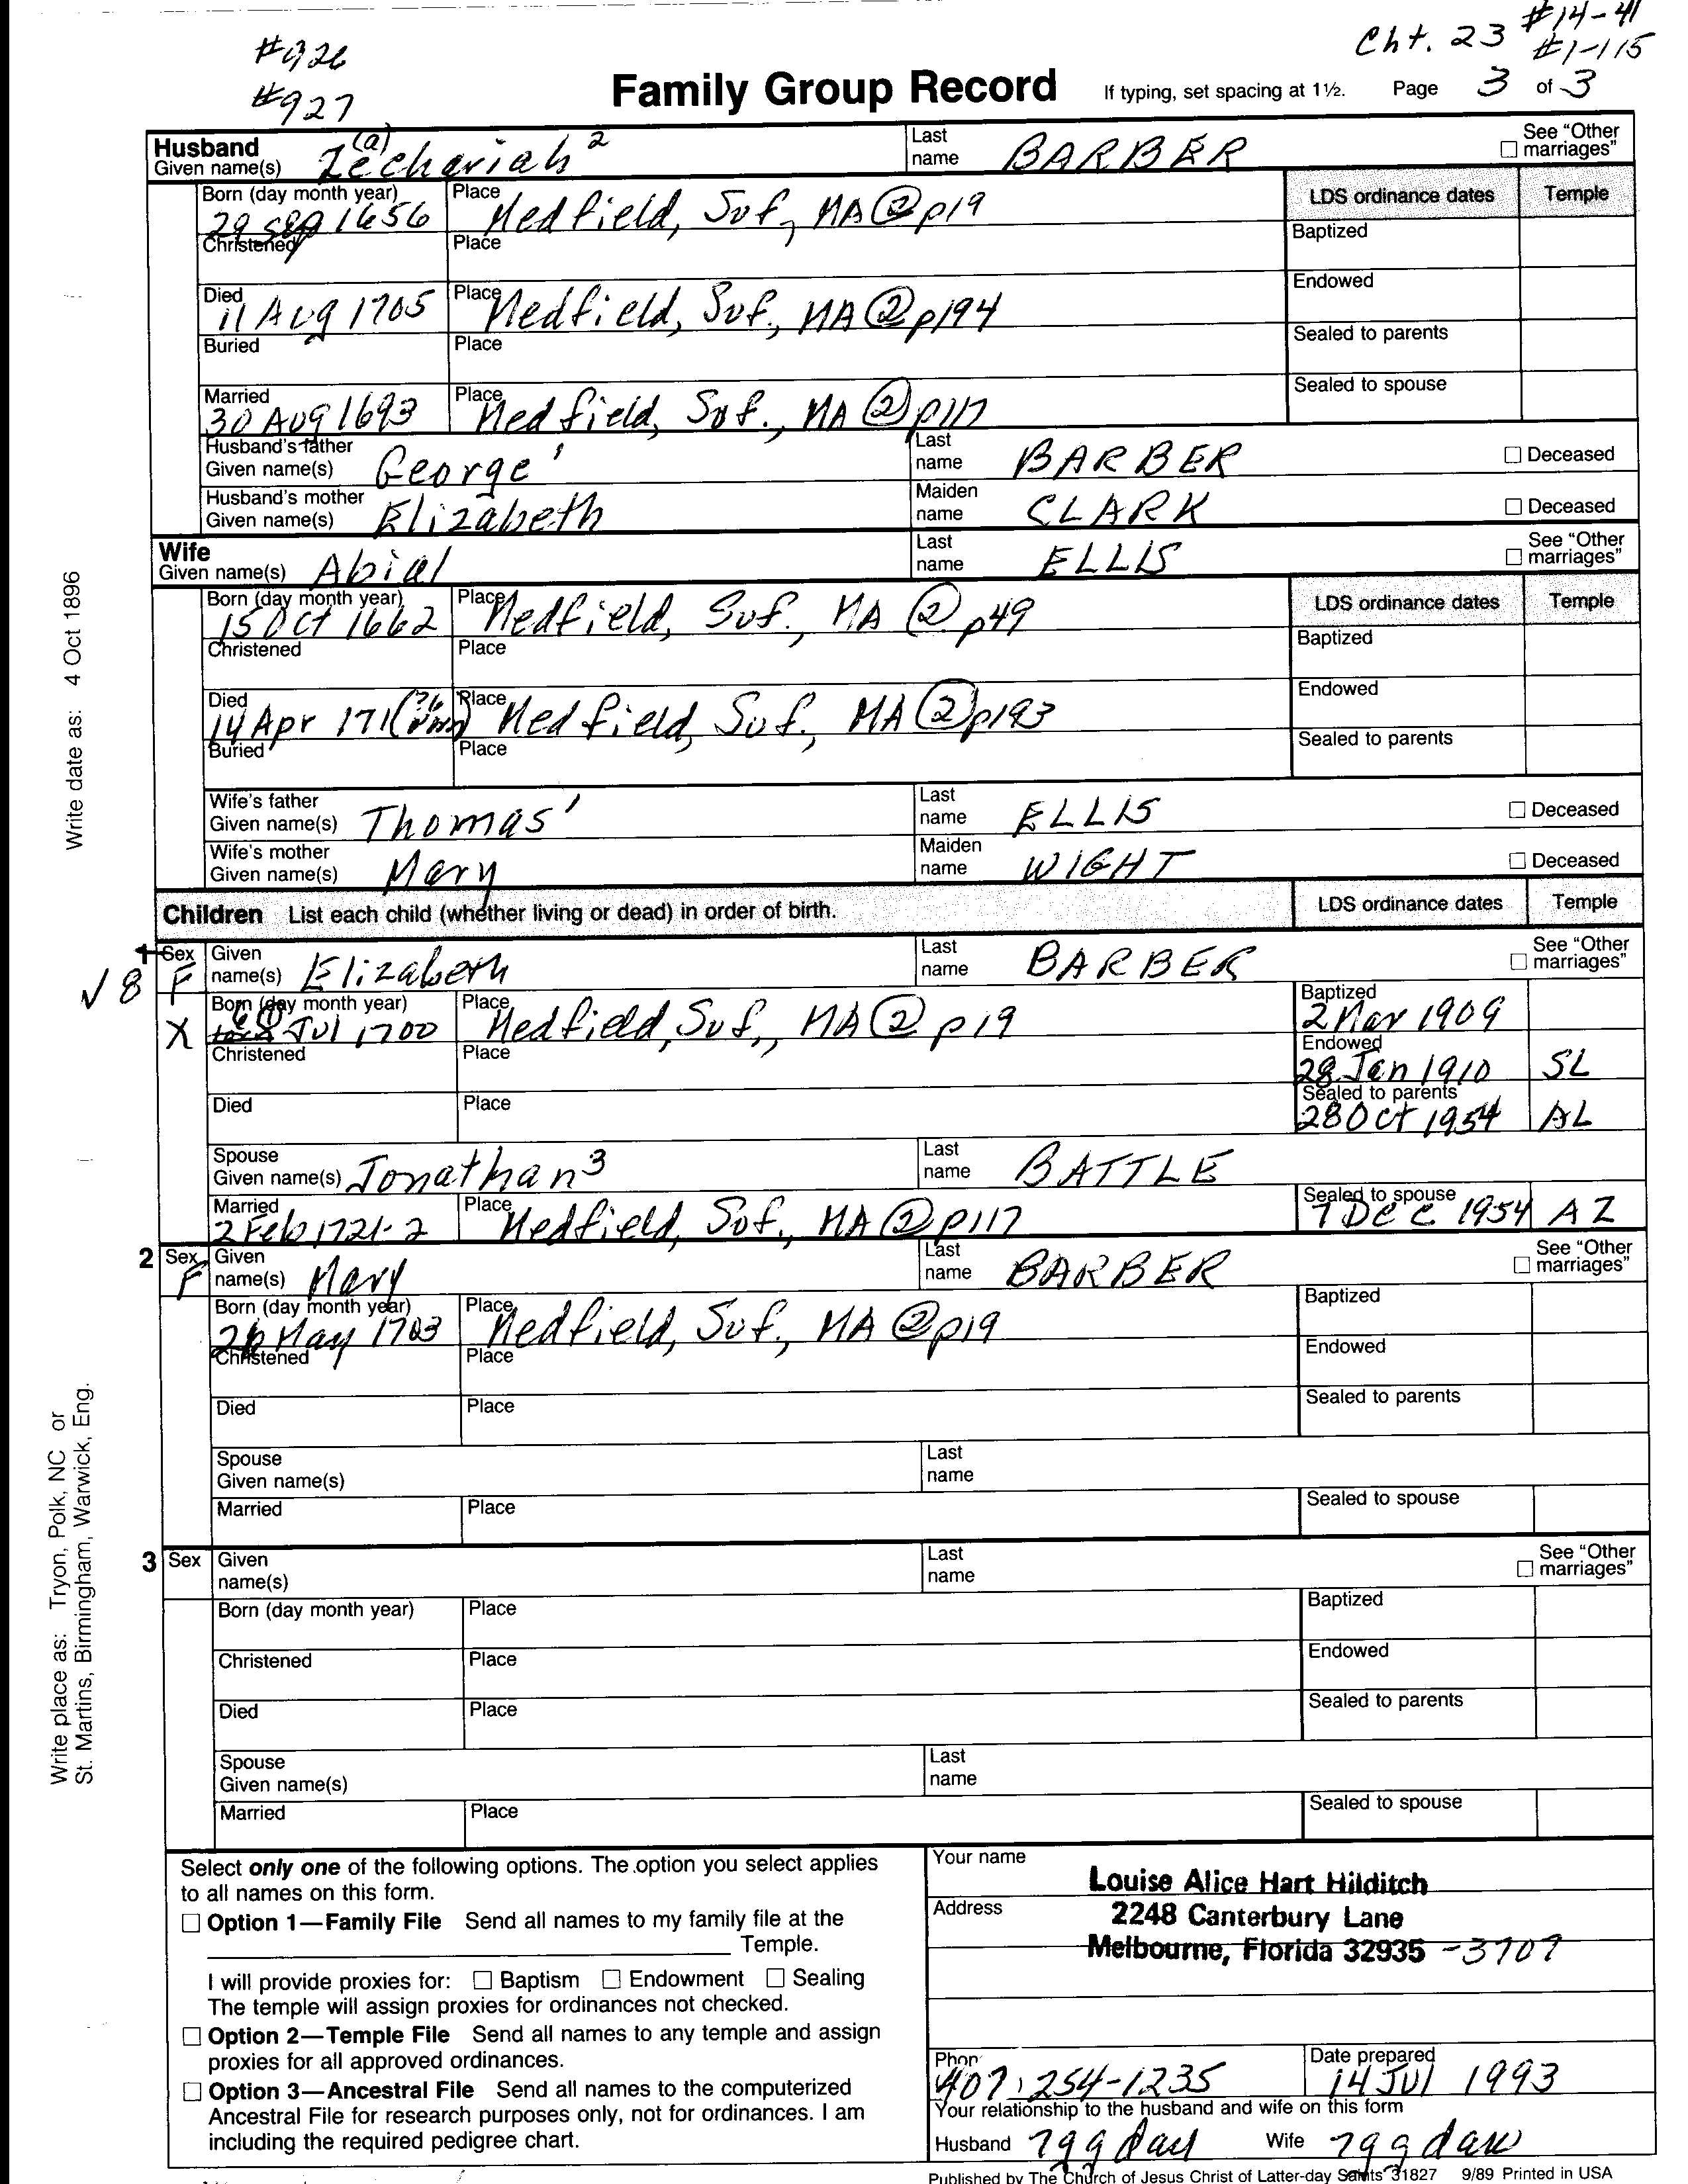 Cht. 23 #14-41
#926 #1-115
#927 Family Group Record If typing, set spacing at 1½. Page 3 of 3
Husband Given name(s) Zechariah² (a) Last name BARBER See "Other marriages"
Born (day month year) 29 Sep 1656 Place Medfield, Suf, MA ② p19 LDS ordinance dates Temple
Christened Place Baptized
Died 11 Aug 1705 Place Medfield, Suf., MA ② p194 Endowed
Buried Place Sealed to parents
Married 30 Aug 1693 Place Medfield, Suf., MA ② p117 Sealed to spouse
Husband's father Given name(s) George' Last name BARBER Deceased
Husband's mother Given name(s) Elizabeth Maiden name CLARK Deceased
Wife Given name(s) Abial Last name ELLIS See "Other marriages"
Born (day month year) 15 Oct 1662 Place Medfield, Suf., MA ② p49 LDS ordinance dates Temple
Christened Place Baptized
Died 14 Apr 171 Place Medfield, Suf., MA ② p193 Endowed
Buried Place Sealed to parents
Wife's father Given name(s) Thomas' Last name ELLIS Deceased
Wife's mother Given name(s) Mary Maiden name WIGHT Deceased
Children List each child (whether living or dead) in order of birth. LDS ordinance dates Temple
1 Sex Given name(s) Elizabeth Last name BARBER See "Other marriages"
√ 8 F
X Born (day month year) Jul 1700 Place Medfield, Suf., MA ② p19 Baptized 2 Mar 1909
Christened Place Endowed 28 Jan 1910 SL
Died Place Sealed to parents 28 Oct 1954 AL
Spouse Given name(s) Jonathan³ Last name BATTLE
Married 2 Feb 1721-2 Place Medfield, Suf., MA ② p117 Sealed to spouse 7 Dec 1954 AZ
2 Sex F Given name(s) Mary Last name BARBER See "Other marriages"
Born (day month year) 26 May 1703 Place Medfield, Suf., MA ② p19 Baptized
Christened Place Endowed
Died Place Sealed to parents
Spouse Given name(s) Last name
Married Place Sealed to spouse
3 Sex Given name(s) Last name See "Other marriages"
Born (day month year) Place Baptized
Christened Place Endowed
Died Place Sealed to parents
Spouse Given name(s) Last name
Married Place Sealed to spouse
Write date as: 4 Oct 1896
Write place as: Tryon, Polk, NC or
St. Martins, Birmingham, Warwick, Eng.
Select only one of the following options. The option you select applies
to all names on this form.
Option 1—Family File Send all names to my family file at the
Temple.
I will provide proxies for: Baptism Endowment Sealing
The temple will assign proxies for ordinances not checked.
Option 2—Temple File Send all names to any temple and assign
proxies for all approved ordinances.
Option 3—Ancestral File Send all names to the computerized
Ancestral File for research purposes only, not for ordinances. I am
including the required pedigree chart.
Your name Louise Alice Hart Hilditch
Address 2248 Canterbury Lane
Melbourne, Florida 32935 -3707
Phon 407 254-1235 Date prepared 14 Jul 1993
Your relationship to the husband and wife on this form
Husband 7gg dau Wife 7gg dau
Published by The Church of Jesus Christ of Latter-day Saints 31827 9/89 Printed in USA